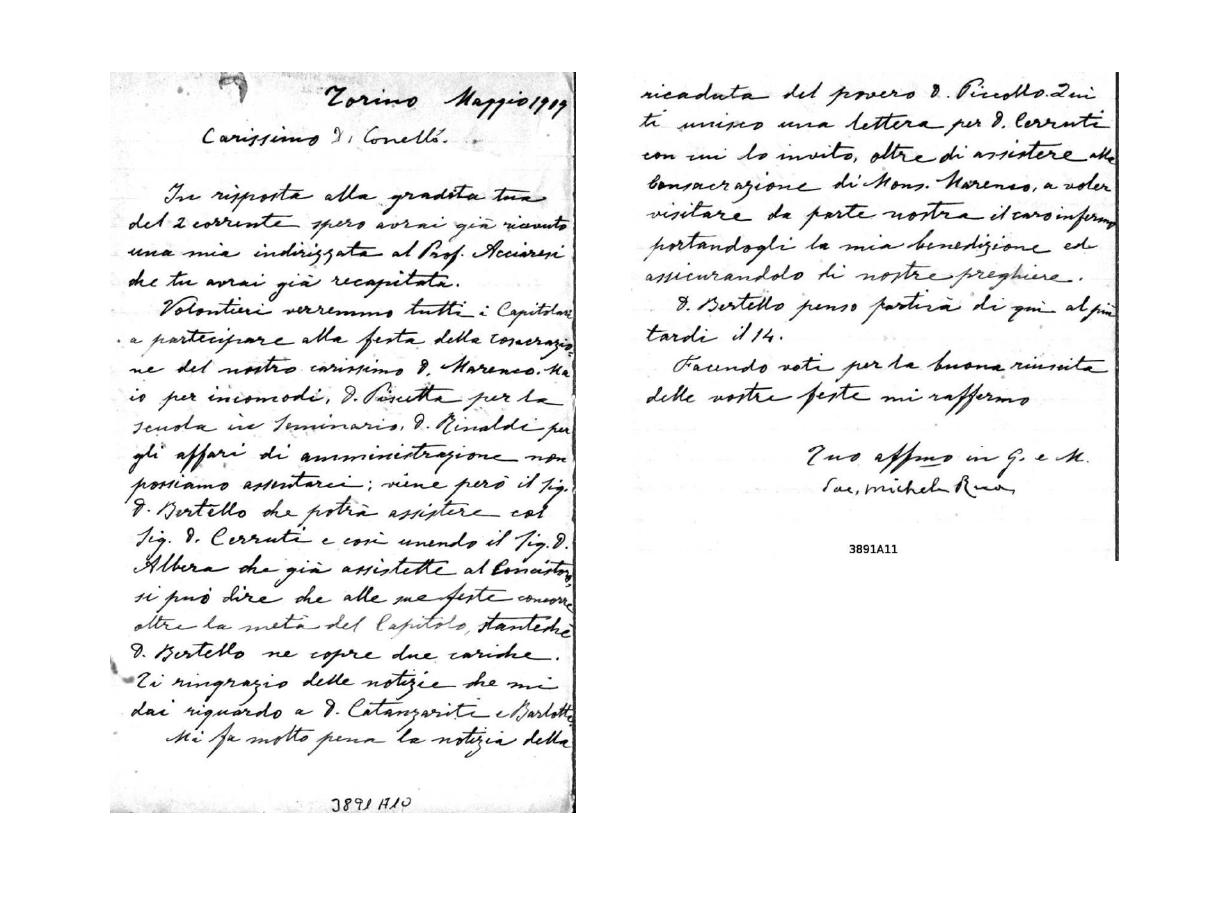 Torino Maggio 1909
Carissimo D. Conelli.
In risposta alla gradita tua
del 2 corrente spero avrai già ricevuto
una mia indirizzata al Prof. Acciaresi
che tu avrai già recapitata.
Volontieri verremmo tutti i Capitolari
a partecipare alla festa della consacrazio-
ne del nostro carissimo D. Marenco. Ma
io per incomodi, D. Piscetta per la
scuola in Seminario, D. Rinaldi per
gli affari di amministrazione non
possiamo assentarci; viene però il Sig.
D. Bertello che potrà assistere col
Sig. D. Cerruti e così unendo il Sig. D.
Albera che già assistette al Concistoro,
si può dire che alle sue feste concorre
oltre la metà del Capitolo, stanteché
D. Bertello ne copre due cariche.
Ti ringrazio delle notizie che mi
dai riguardo a D. Catanzariti e
Mi fa molto pena la notizia della
3891A10
ricaduta del povero D. Piccollo. Qui
ti unisco una lettera per D. Cerruti
con cui lo invito, oltre di assistere alla
Consacrazione di Mons. Marenco, a voler
visitare da parte nostra il caro infermo
portandogli la mia benedizione ed
assicurandolo di nostre preghiere.
D. Bertello penso partirà di qui al più
tardi il 14.
Facendo voti per la buona riuscita
delle vostre feste mi raffermo
Tuo affmo in G. e M.
Sac. Michele Rua
3891A11